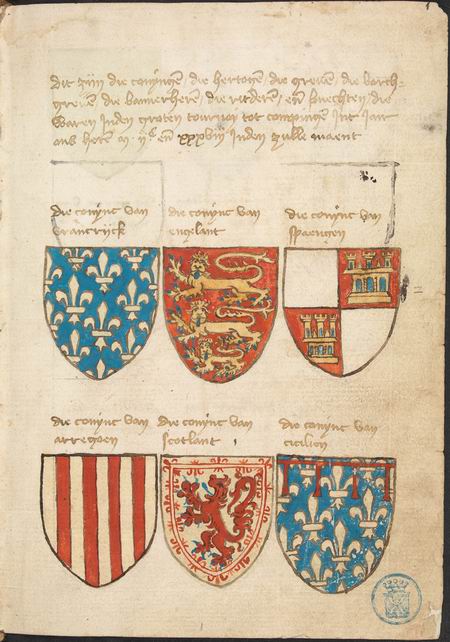 Dit zijn die coningen / die hertogen / die greven / die borch=
greven die bannerheren / die ridderen / ende knechten / die
waren inden groten tournoy tot compingen int Jair
ons heren M. ij c en xxxviij inden zulle maent
die coninc van
vrancrijck
die coninc van
engelant
die coninc van
spaengen
die coninc van
arregoen
die coninc van
scotlant
die coninc van
cicilien